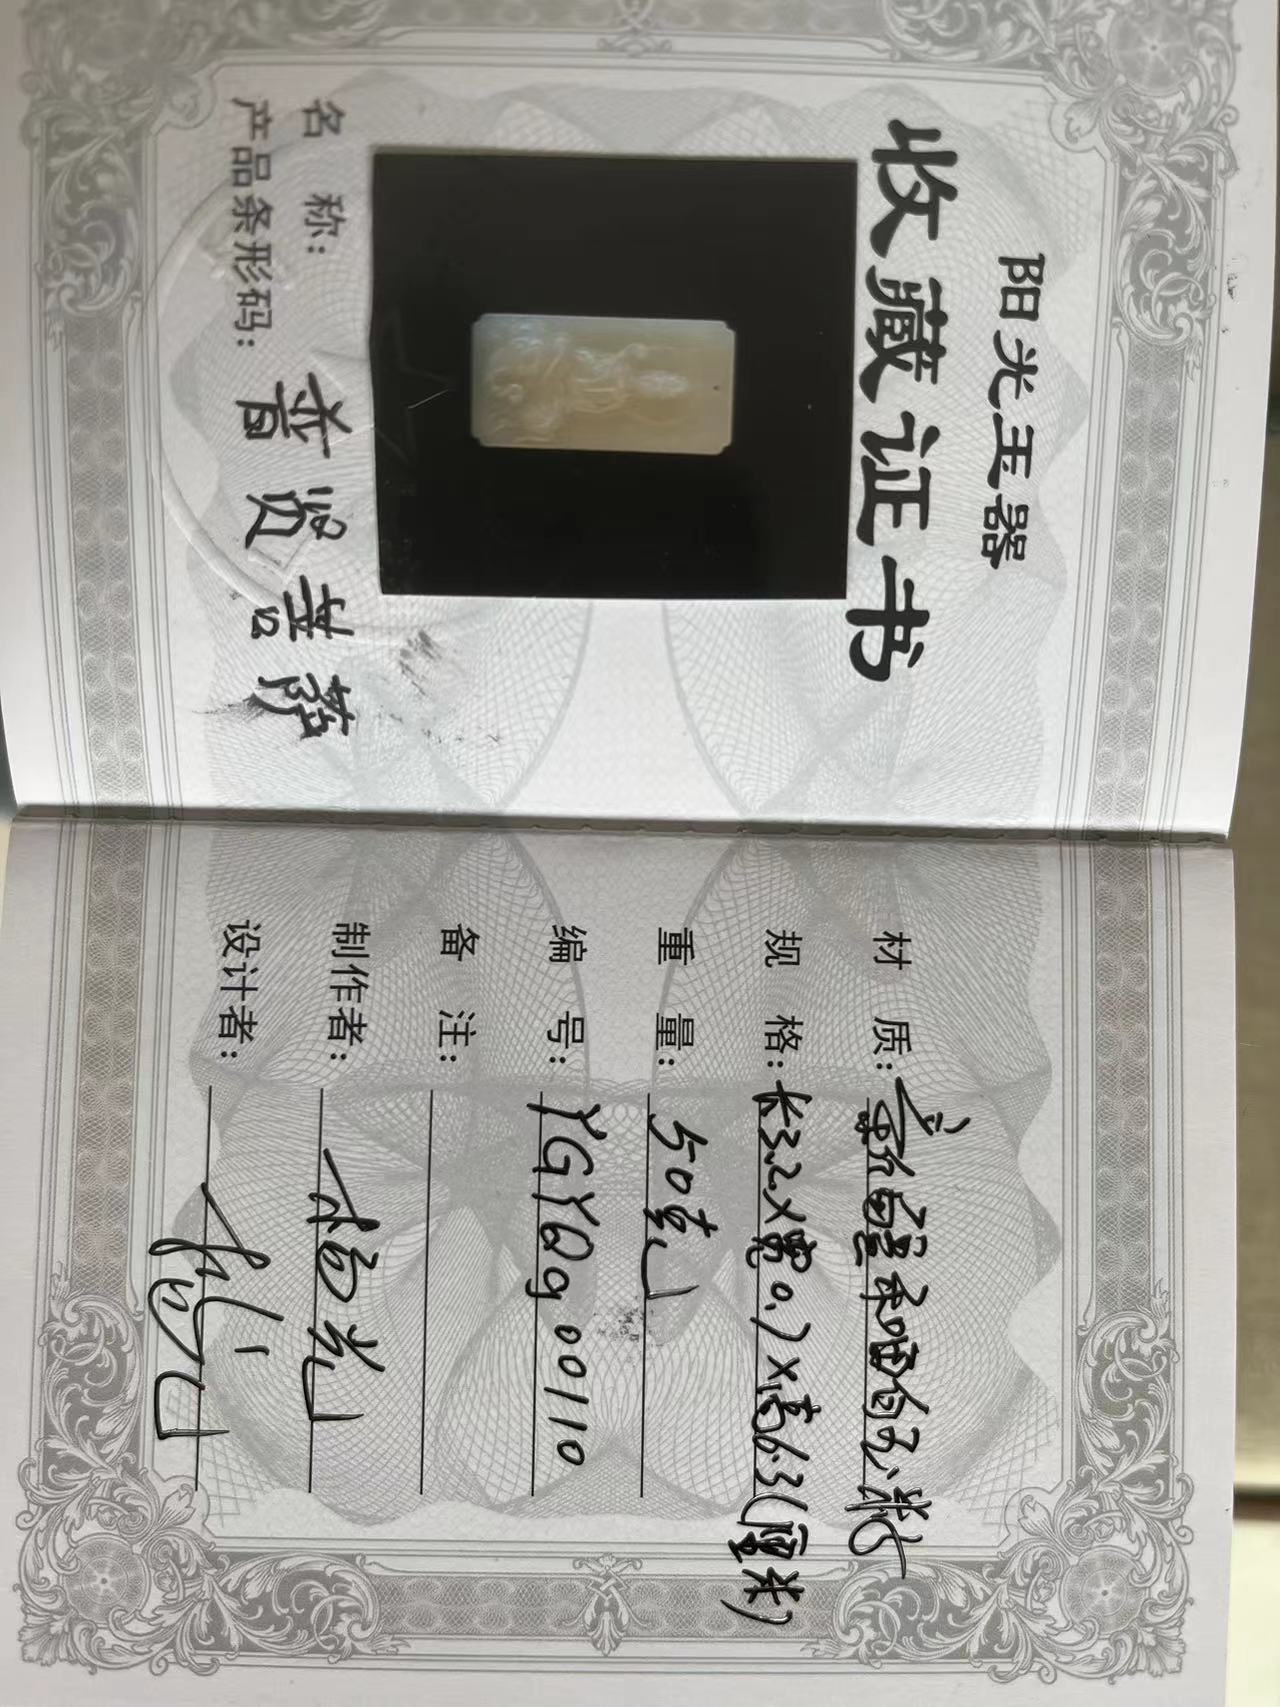 阳光玉器
收藏证书
名 称:
产品条形码:
普贤菩萨
材 质: 新疆和田白玉籽
规 格: 长3.2x宽0.7x高6.3(厘米)
重 量: 50克
编 号: YGYQg00110
备 注:
制作者: 杨光
设计者: